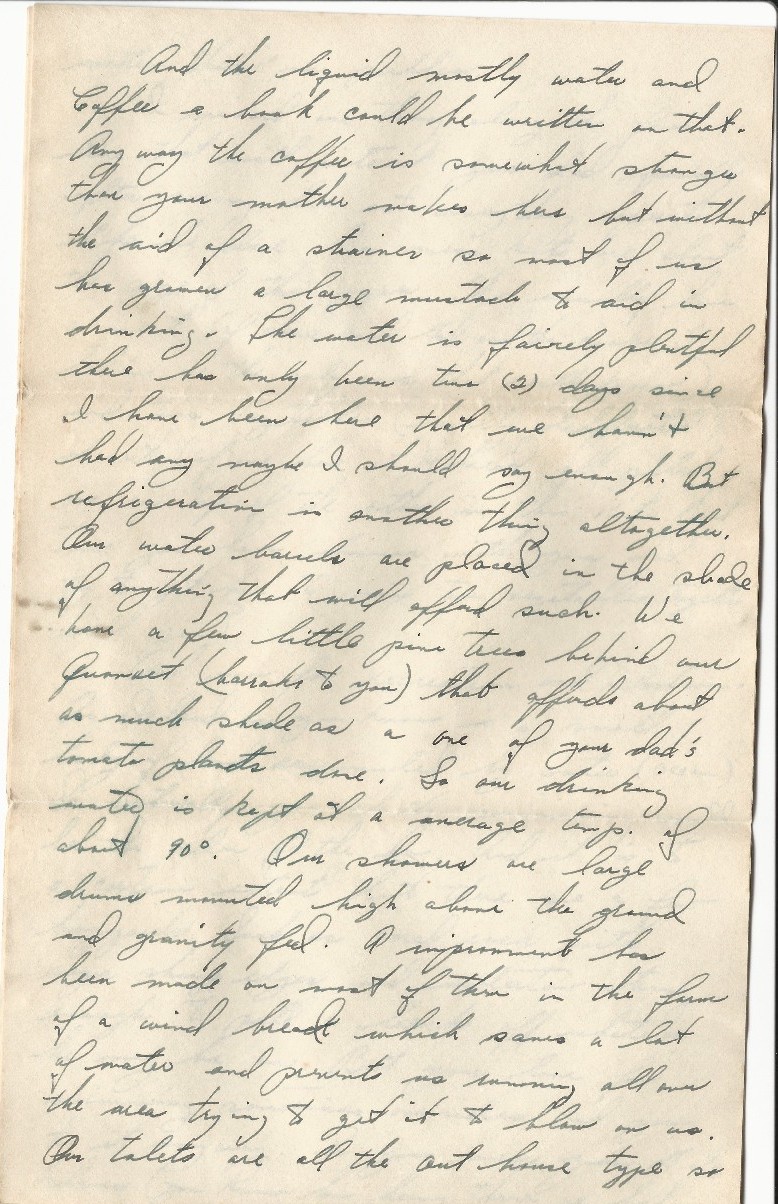 And the liquid mostly water and
Coffee a book could be written on that.
Any way the coffee is somewhat stronger
than your mother makes hers but without
the aid of a strainer so most of us
has grown a large mustach to aid in
drinking. The water is fairely plentful
there has only been two (2) days since
I have been here that we havn't
had any maybe I should say enough. But
refrigeration is another thing altogether.
Our water barrels are placed in the shade
of anything that will afford such. We
have a few little pine trees behind our
Quonset (barraks to you) that affords about
as much shade as a one of your dad's
tomato plants done. So our drinking
water is kept at a average temp. of
about 90°. Our showers are large
drums mounted high above the ground
and gravity fed. A improvment has
been made on most of them in the form
of a wind break which saves a lot
of water and prevents us running all over
the area trying to get it to blow on us.
Our tolets are all the out house type so